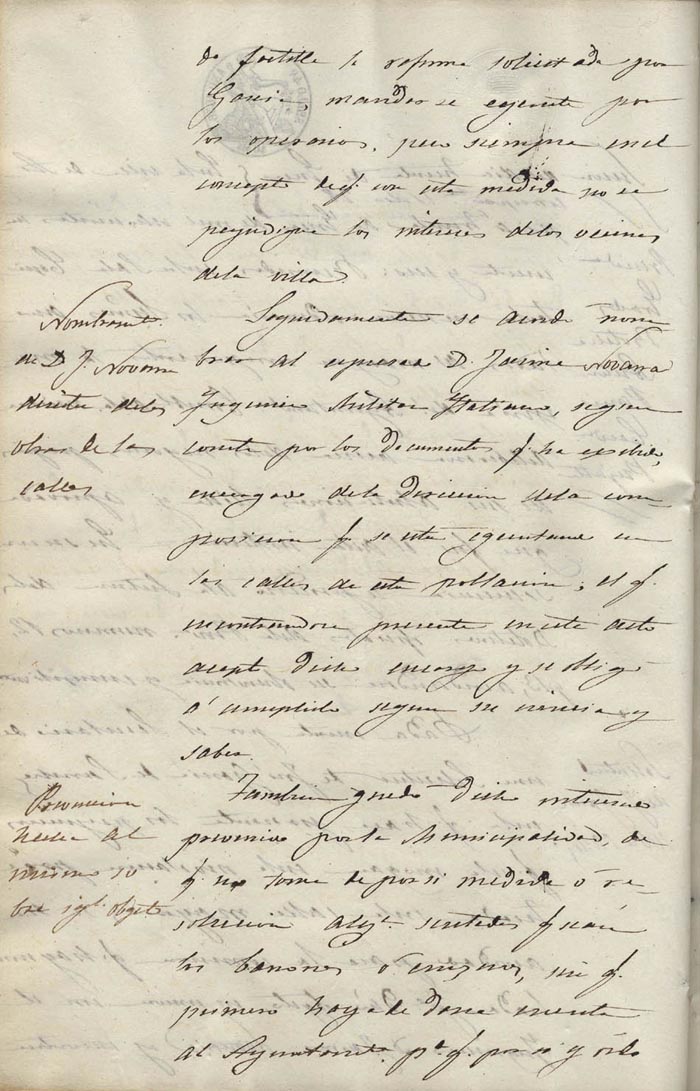 de facilite la reforma solicitada por
Garcia, mandar se egecute por
los operarios, pero siempre en el
concepto de q.^e con esta medida no se
perjudique los intereses de los vecinos
de la villa.
Nombram.^to
de D. J. Novarra
director de las
obras de las
calles
Seguidamente se acordó nom
brar al espresado D. Jaime Novarra
Ingeniero Militar Italiano, segun
consta por los documentos q.^e ha exibido,
encargado de la Direccion de la com
posicion q.^e se está egecutando en
las calles de esta poblacion; el q.^e
encontrandose presente en este acto
aceptó dicho encargo y se obligó
á cumplirlo segun su ciencia y
saber.
Prevencion
hecha al
mismo so
bre igl. objeto
Tambien quedó dicho interesado
prevenido por la Municipalidad, de
q.^e no tome de por si medida ó re-
solucion
los
primero haya de darse cuenta
al Ayuntamt.^o p.^a q.^e por si y